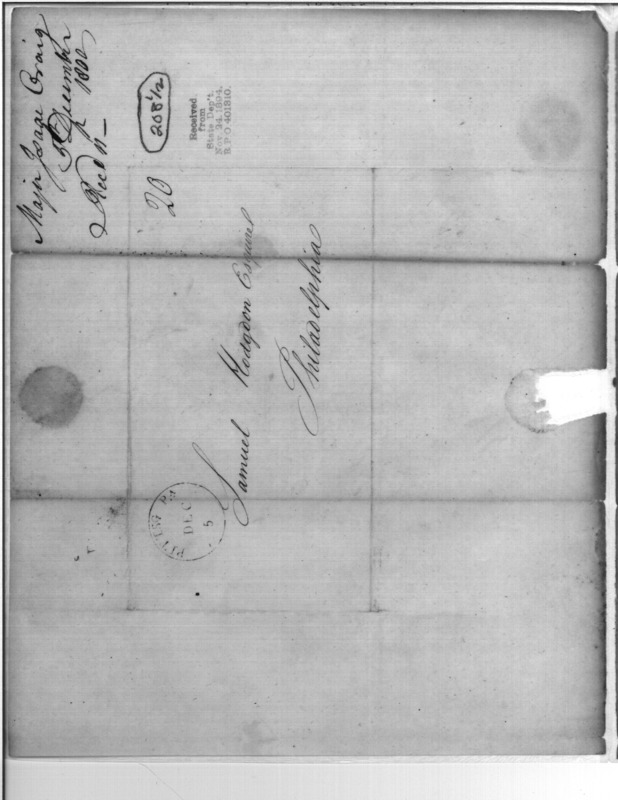 Major Isaac Craig
5 December
1800
Recd 11
208 1/2
Received
from
State Dep't.
Nov. 24, 1894.
R. P. O. 401810.
20
Samuel Hodgdon Esquire
Philadelphia
DEC
5